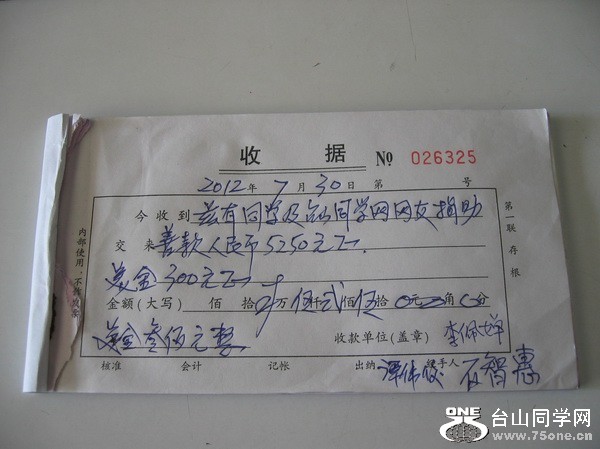 收据 № 026325
2012年7月30日 第 号
今收到 兹有同学及台山同学网网友捐助
交来 善款人民币5250元正.
美金300元正
金额(大写) 佰 拾 万 伍仟贰佰伍拾0元 角 分
美金叁佰元整 收款单位(盖章)
核准 会计 记帐 出纳 经手人 石智惠
第一联 存根
内部使用·不作发票
ONE 台山同学网
www.75one.cn